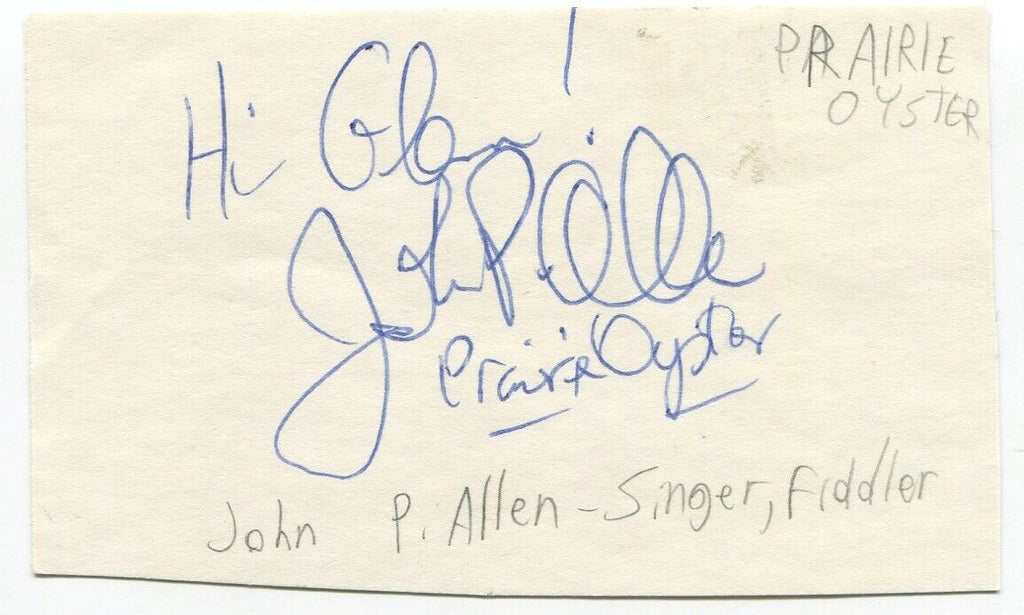 PRAIRIE
OYSTER
Hi Glen!
John P. Alle
Prairie Oyster
John P. Allen - Singer, Fiddler